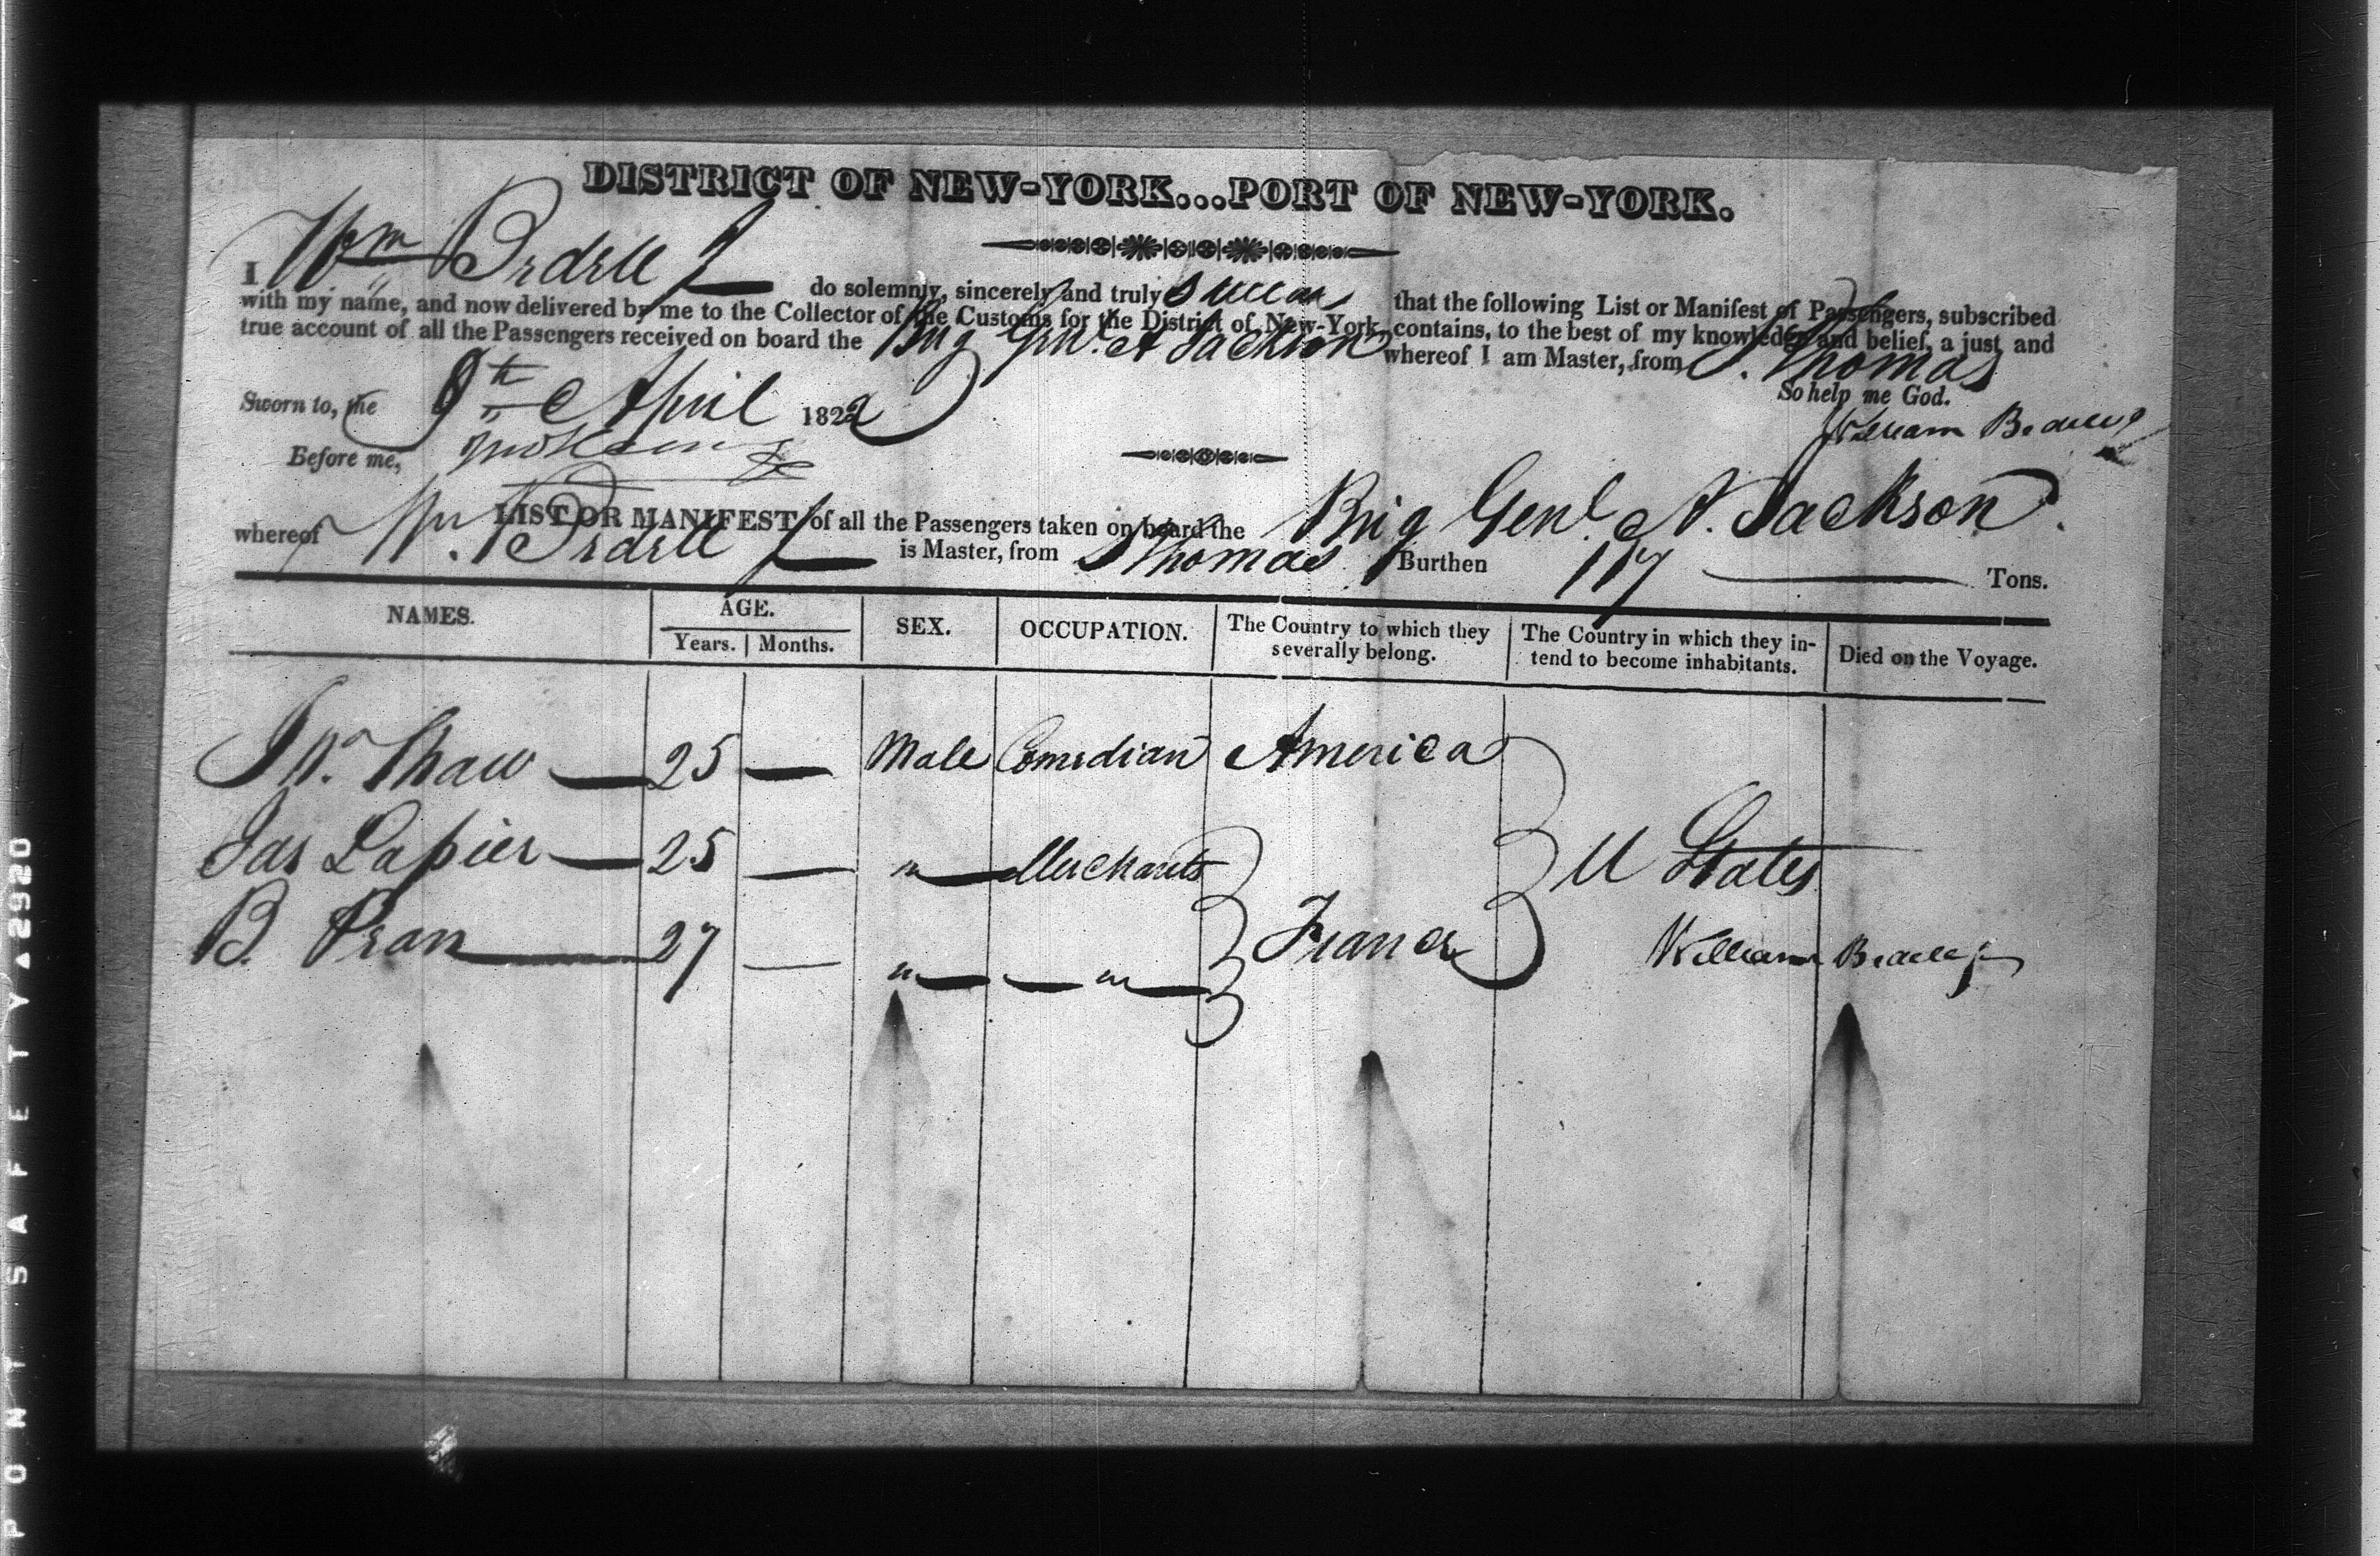 DISTRICT OF NEW-YORK...PORT OF NEW-YORK.
I Wm Bedell do solemnly, sincerely and truly swear that the following List or Manifest of Passengers, subscribed
with my name, and now delivered by me to the Collector of the Customs for the District of New-York, contains, to the best of my knowledge and belief, a just and
true account of all the Passengers received on board the Brig Genl. A Jackson whereof I am Master, from St. Thomas
So help me God.
Sworn to, the 9th April 1822
William Bedell
Before me,
LIST OR MANIFEST of all the Passengers taken on board the Brig Genl. A. Jackson
whereof Wm. Bedell is Master, from St Thomas Burthen 117 Tons.
NAMES. AGE. SEX. OCCUPATION. The Country to which they severally belong. The Country in which they in-tend to become inhabitants. Died on the Voyage.
Years. Months.
Jno. Thaw — 25 — Male Comedian America
Jas Lapier — 25 — " Merchants
U States
B. Pran — 27 — " — " — France
William Bedell
PONT SAFETY ▲ 2920